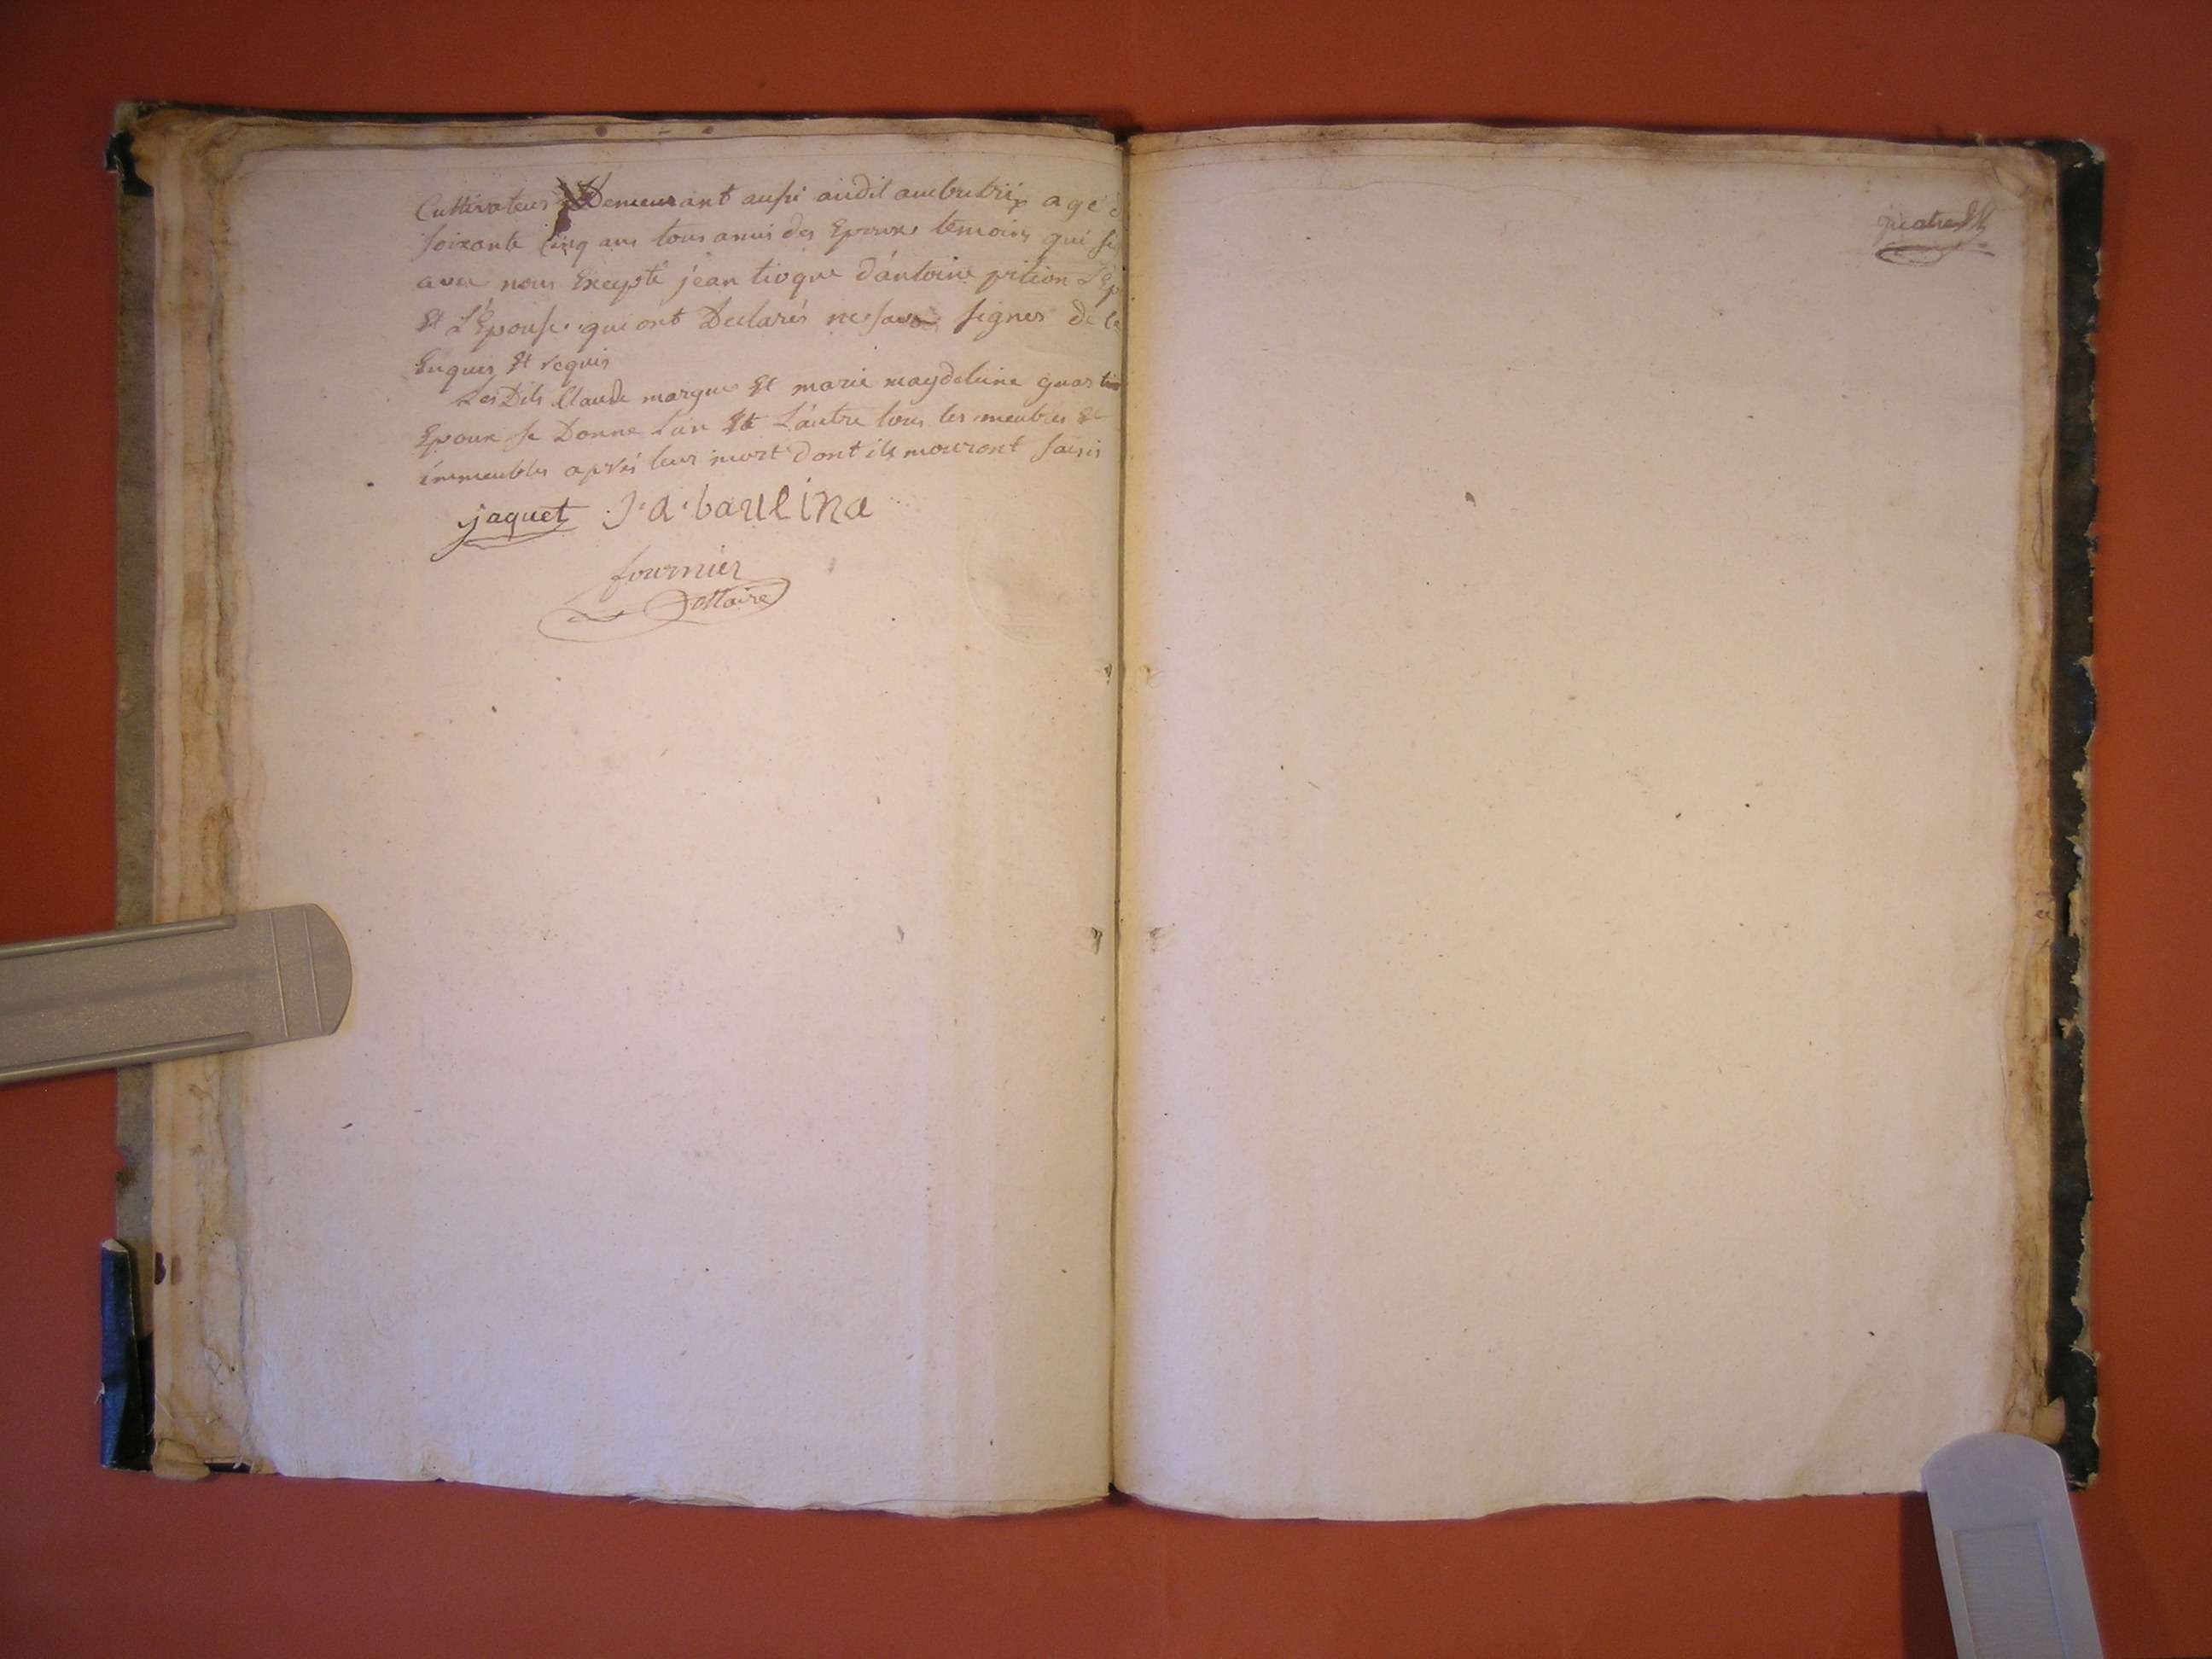 Cultivateur Demeurant aussi audit ambutrix agé d
soixante cinq ans tous amis des Epoux temoins qui sig
avec nous Excepté jean tioque d'antoine pition L'Ep
Et L'Epouse qui ont Declarés ne savoir signer de ce
Enquis Et requis
Les Dits Claude margue Et marie magdeleine
Epoux se Donne L'un Et L'autre tous les meubles Et
immeubles après leur mort dont ils mouront saisis
jaquet J. a. baulina
fournier
Nottaire